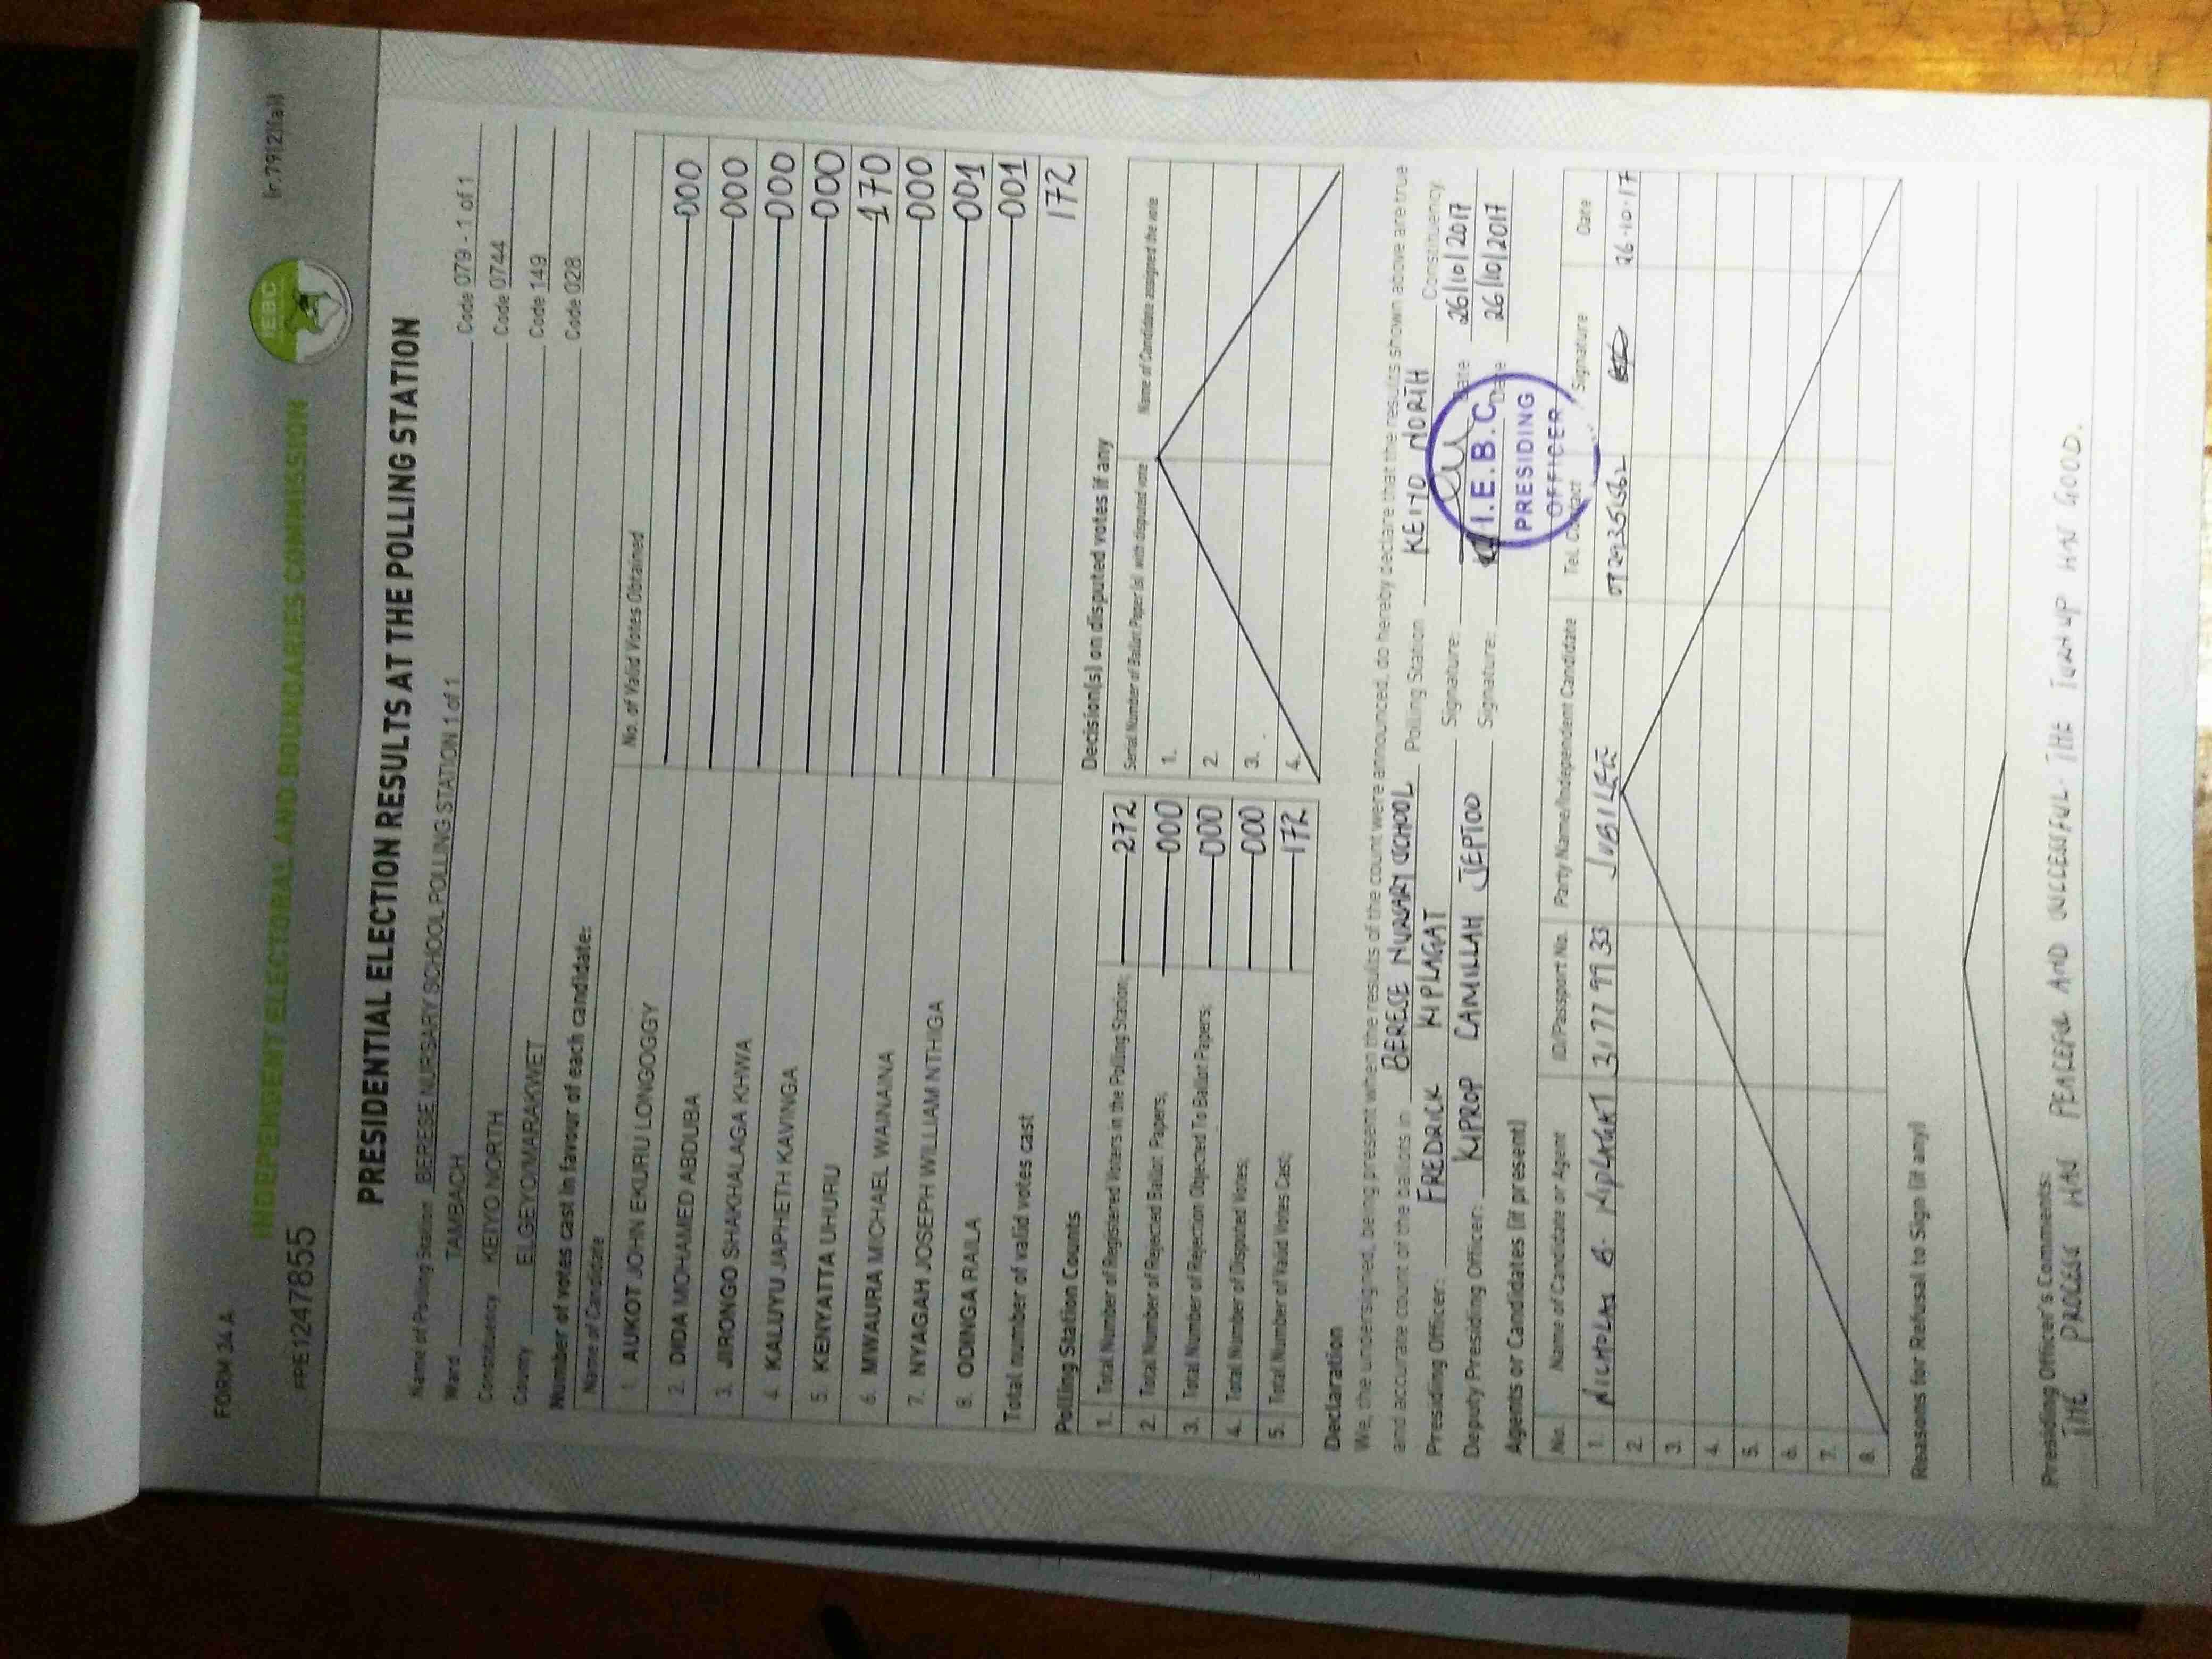 FORM 34 A
INDEPENDENT ELECTORAL AND BOUNDARIES COMMISSION
IEBC
(r.79(2)(a))
PRE1247855
PRESIDENTIAL ELECTION RESULTS AT THE POLLING STATION
Name of Polling Station BERESE NURSARY SCHOOL POLLING STATION 1 of 1 Code 079 - 1 of 1
Ward TAMBACH Code 0744
Constituency KEIYO NORTH Code 149
County ELGEYO/MARAKWET Code 028
Number of votes cast in favour of each candidate:
Name of Candidate No. of Valid Votes Obtained
1. AUKOT JOHN EKURU LONGOGGY 000
2. DIDA MOHAMED ABDUBA 000
3. JIRONGO SHAKHALAGA KHWA 000
4. KALUYU JAPHETH KAVINGA 000
5. KENYATTA UHURU 170
6. MWAURA MICHAEL WAINAINA 000
7. NYAGAH JOSEPH WILLIAM NTHIGA 001
8. ODINGA RAILA 001
Total number of valid votes cast 172
Polling Station Counts
1. Total Number of Registered Voters in the Polling Station; 272
2. Total Number of Rejected Ballot Papers; 000
3. Total Number of Rejection Objected To Ballot Papers; 000
4. Total Number of Disputed Votes; 000
5. Total Number of Valid Votes Cast; 172
Decision(s) on disputed votes if any
Serial Number of Ballot Paper (s) with disputed vote Name of Candidate assigned the vote
1.
2.
3.
4.
Declaration
We, the undersigned, being present when the results of the count were announced, do hereby declare that the results shown above are true
and accurate count of the ballots in BERESE NURSARY SCHOOL Polling Station KEIYO NORTH Constituency.
Presiding Officer: FREDRICK KIPLAGAT Signature: Date 26/10/2017
Deputy Presiding Officer: KIPROP CAMILLAH JEPTOO Signature: Date 26/10/2017
I.E.B.C.
PRESIDING
OFFICER
Agents or Candidates (if present)
No. Name of Candidate or Agent ID/Passport No. Party Name/Independent Candidate Tel. Contact Signature Date
1. NICHOLAS B. KIPLAGAT 31779933 JUBILEE 26-10-17
2.
3.
4.
5.
6.
7.
8.
Reasons for Refusal to Sign (if any)
Presiding Officer's Comments:
THE PROCESS WAS PEACEFUL AND SUCCESSFUL. THE TURNUP WAS GOOD.